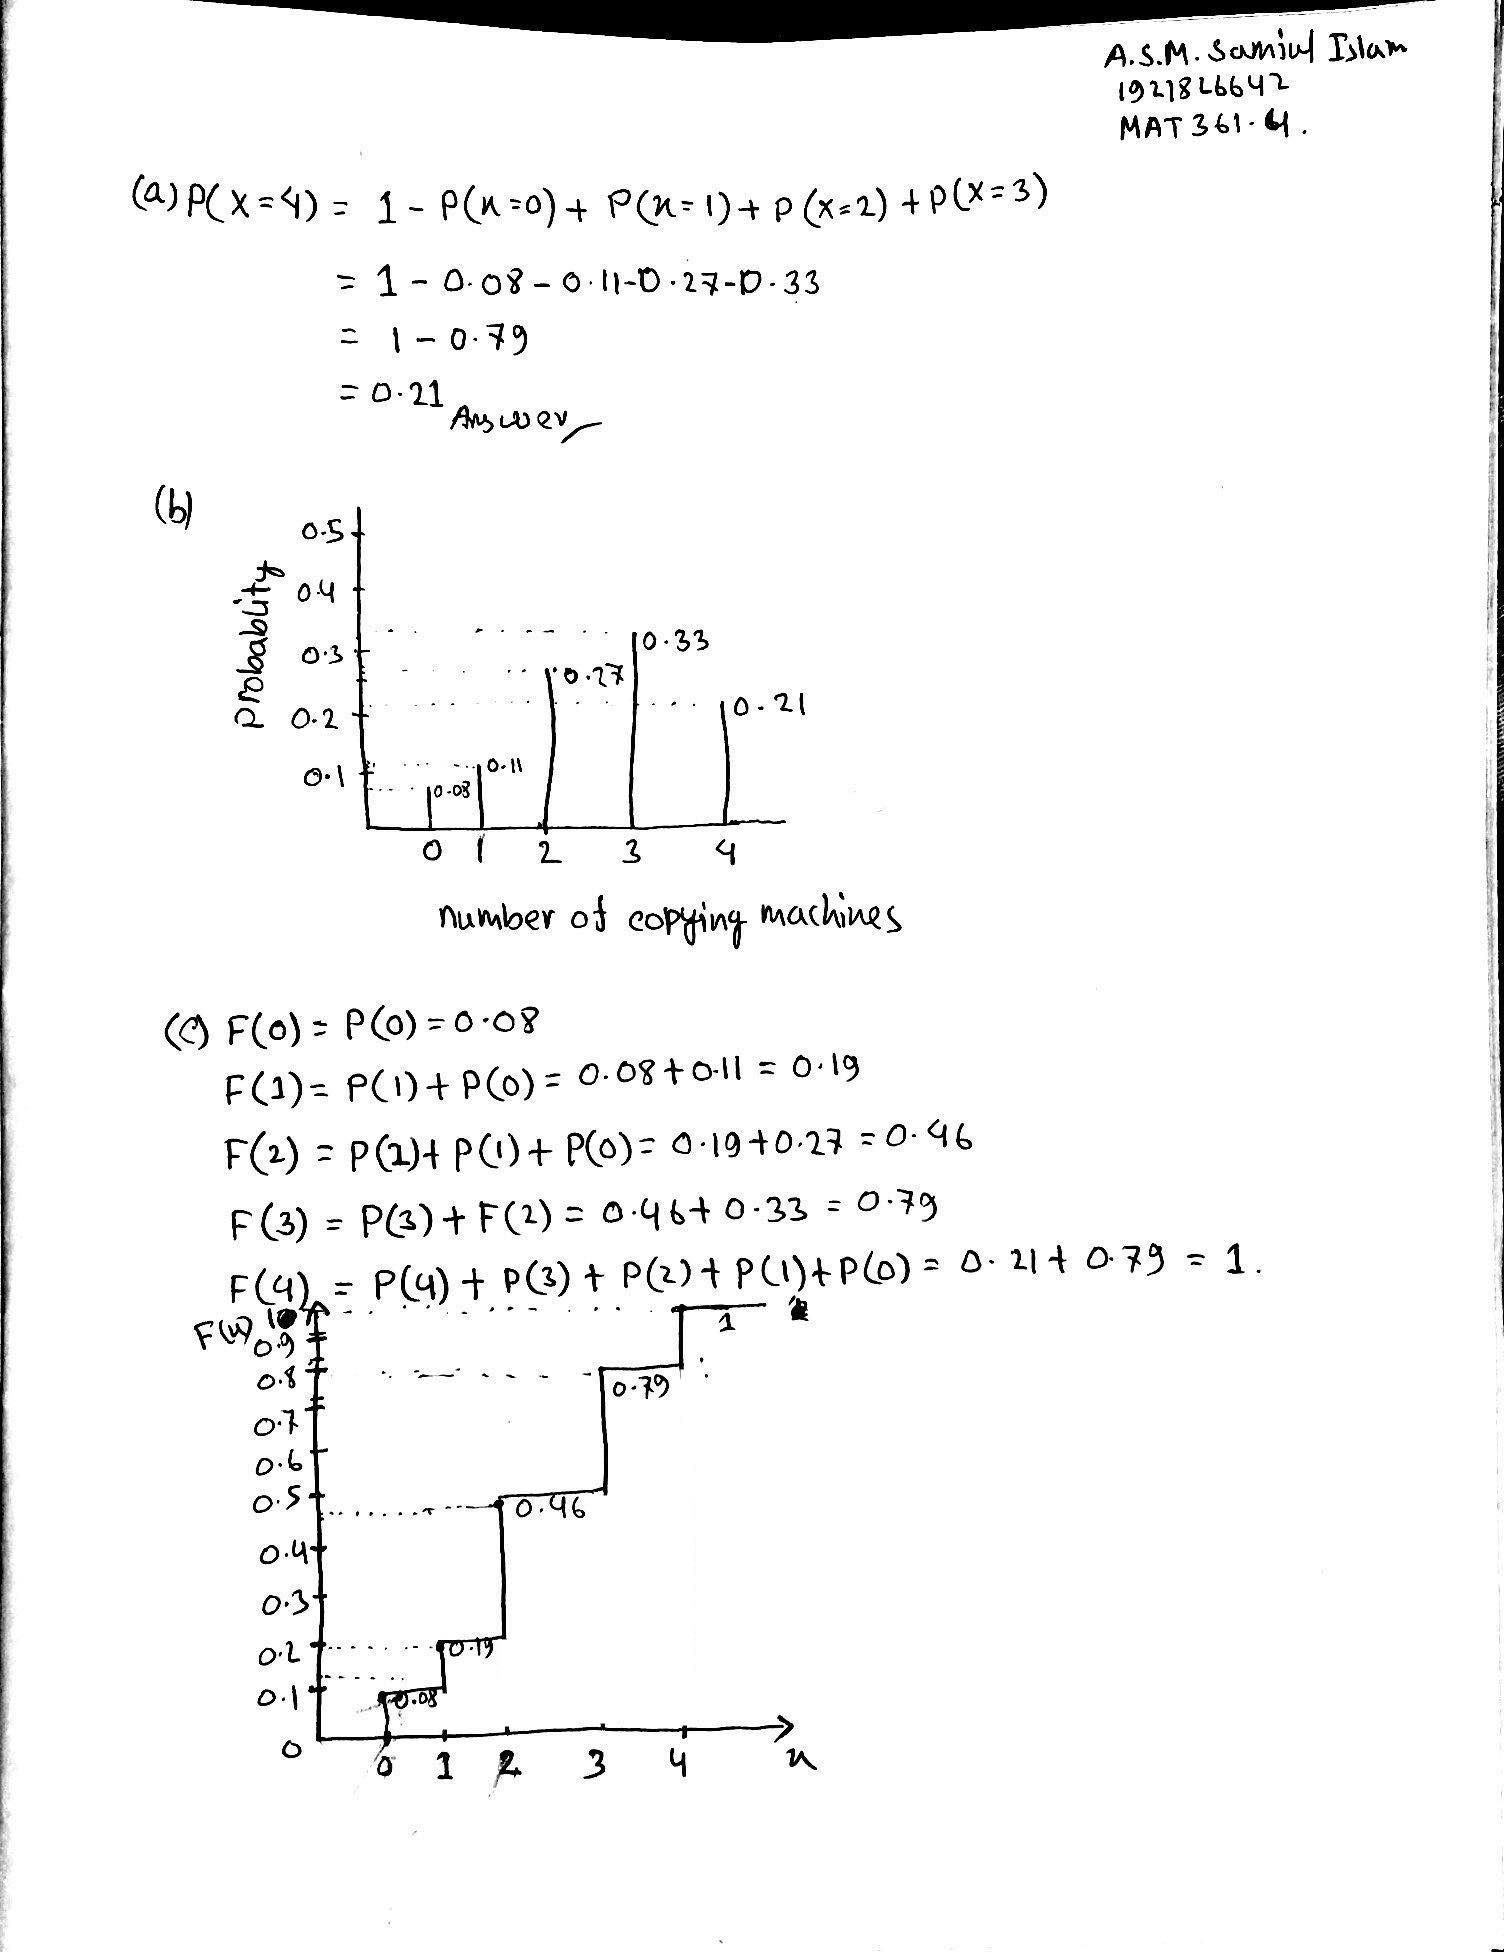 A.S.M. Samiul Islam
1921826642
MAT361.4.
(a) P(X=4) = 1 - P(x=0) + P(x=1) + P(x=2) + P(X=3)
= 1 - 0.08 - 0.11 - 0.27 - 0.33
= 1 - 0.79
= 0.21
Answer
(b)
probablity
0.5
0.4
0.3
0.2
0.1
0.08
0.11
0.27
0.33
0.21
0 1 2 3 4
number of copying machines
(c) F(0) = P(0) = 0.08
F(1) = P(1) + P(0) = 0.08 + 0.11 = 0.19
F(2) = P(2) + P(1) + P(0) = 0.19 + 0.27 = 0.46
F(3) = P(3) + F(2) = 0.46 + 0.33 = 0.79
F(4) = P(4) + P(3) + P(2) + P(1) + P(0) = 0.21 + 0.79 = 1.
F(x)
0.9
0.8
0.7
0.6
0.5
0.4
0.3
0.2
0.1
0
0.08
0.19
0.46
0.79
1
0 1 2 3 4 x